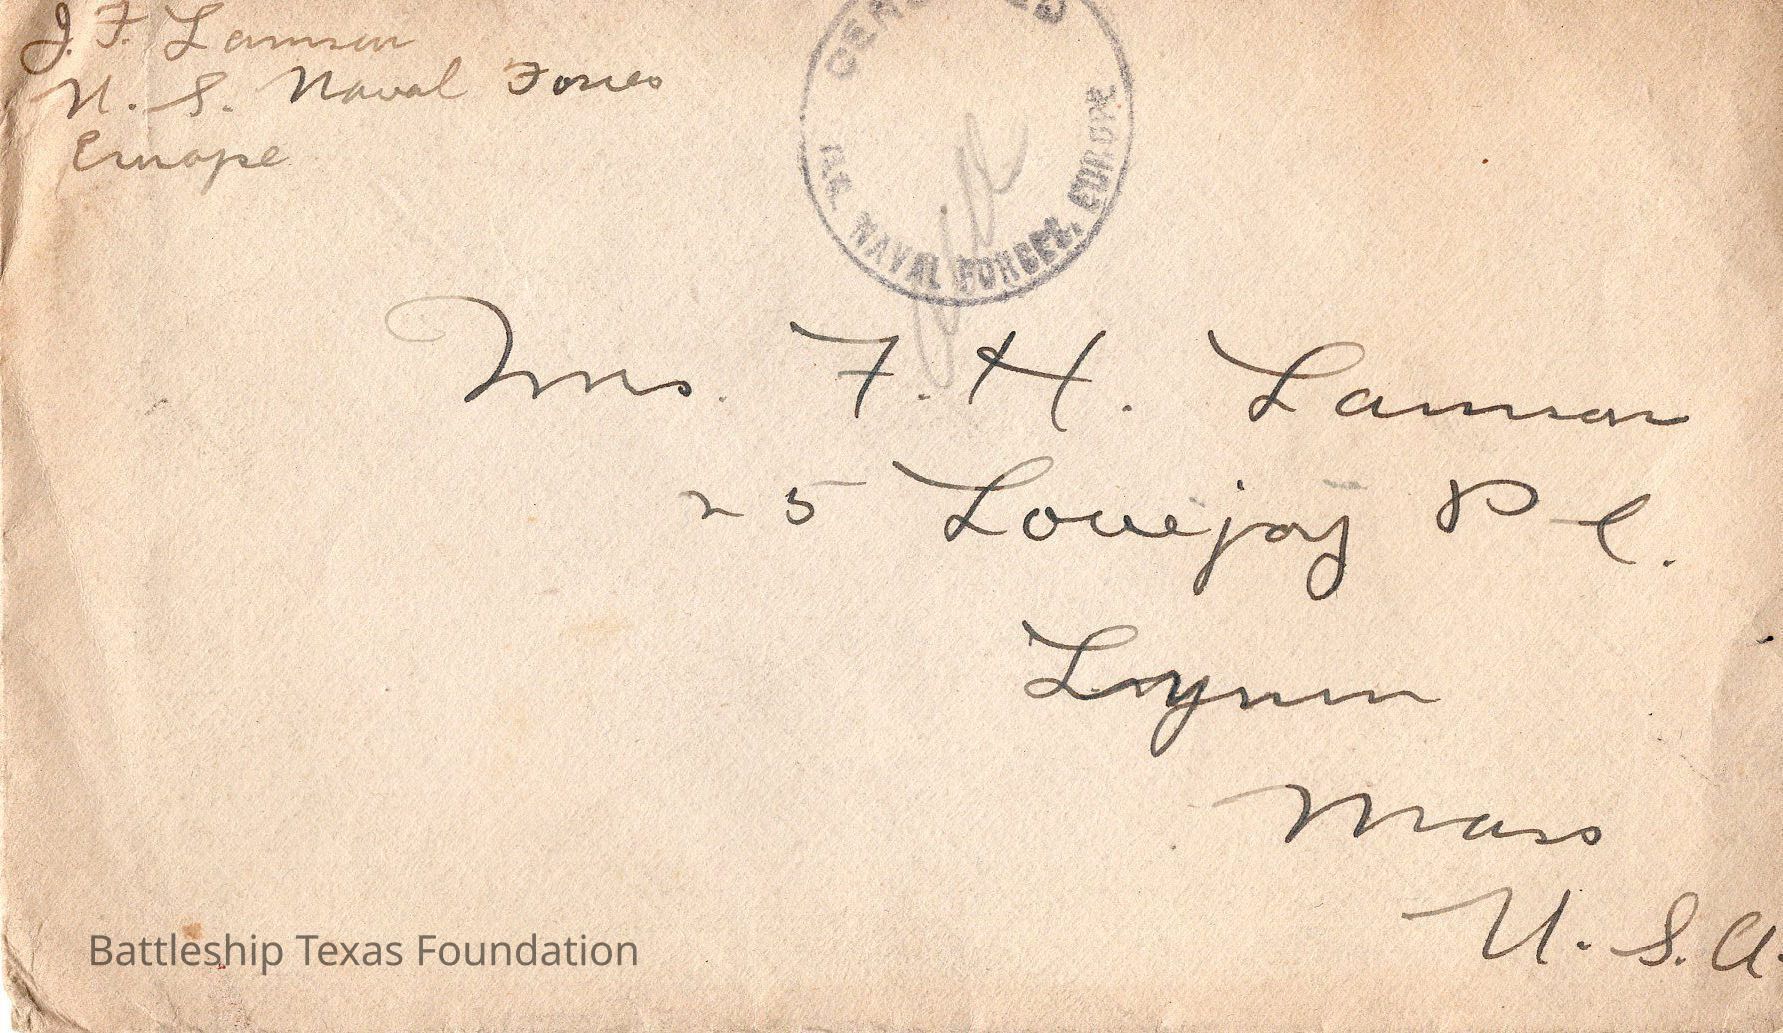 J. F. Lamson
U. S. Naval Forces
Europe
CENSORED
U.S. NAVAL FORCES, EUROPE
Mrs. F. H. Lamson
25 Lovejoy Pl.
Lynn
Mass
U. S. A.
Battleship Texas Foundation